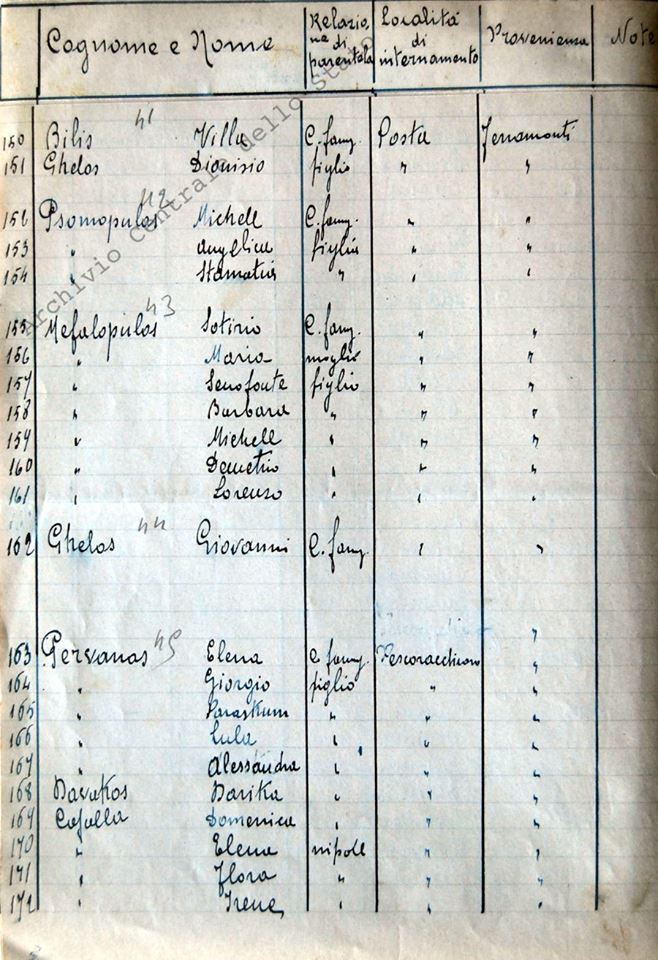 Cognome e Nome Relazione di parentela Località di internamento Provenienza Note
41
150 Bilis Villa C. fam. Posta Ferramonti
151 Ghelos Dionisio figlio " "
42
152 Psomopulos Michell C. fam. " "
153 " Angelica figlia " "
154 " Stamatia " " "
43
155 Mefalopulos Sotirio C. fam. " "
156 " Maria moglie " "
157 " Senofonte figlio " "
158 " Barbara " " "
159 " Michell " " "
160 " Demetrio " " "
161 " Lorenzo " " "
44
162 Ghelos Giovanni C. fam. " "
"
45
163 Pervanas Elena C. fam. "
164 " Giorgio figlio " "
165 " " " "
166 " Lula " " "
167 " Alessandra " " "
168 Davakos Darika " " "
169 Cafalla Domenica " " "
170 " Elena nipote " "
171 " Flora " " "
172 " Irene " " "
Archivio Centrale dello Stato